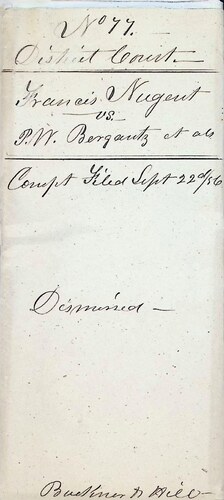 No 77.
District Court.
Francis Nugent
vs.
P. W. Bergantz et als
Compt Filed Sept 22d/56
Dismissed —
Buckner & Hill